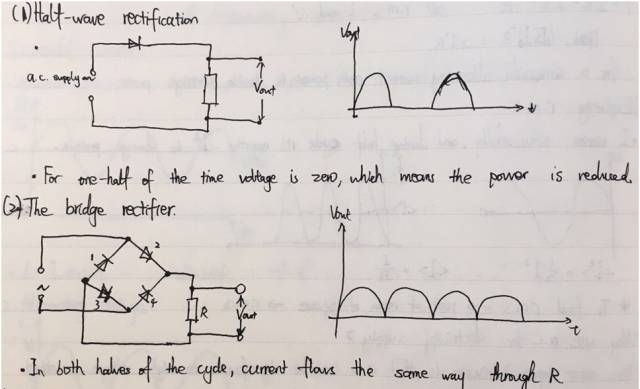 (1) Half-wave rectification
Vout
a.c. supply
Vout
t
· For one-half of the time voltage is zero, which means the power is reduced.
(2) The bridge rectifier.
Vout
1
2
~
3
4
R
Vout
t
· In both halves of the cycle, current flows the same way through R